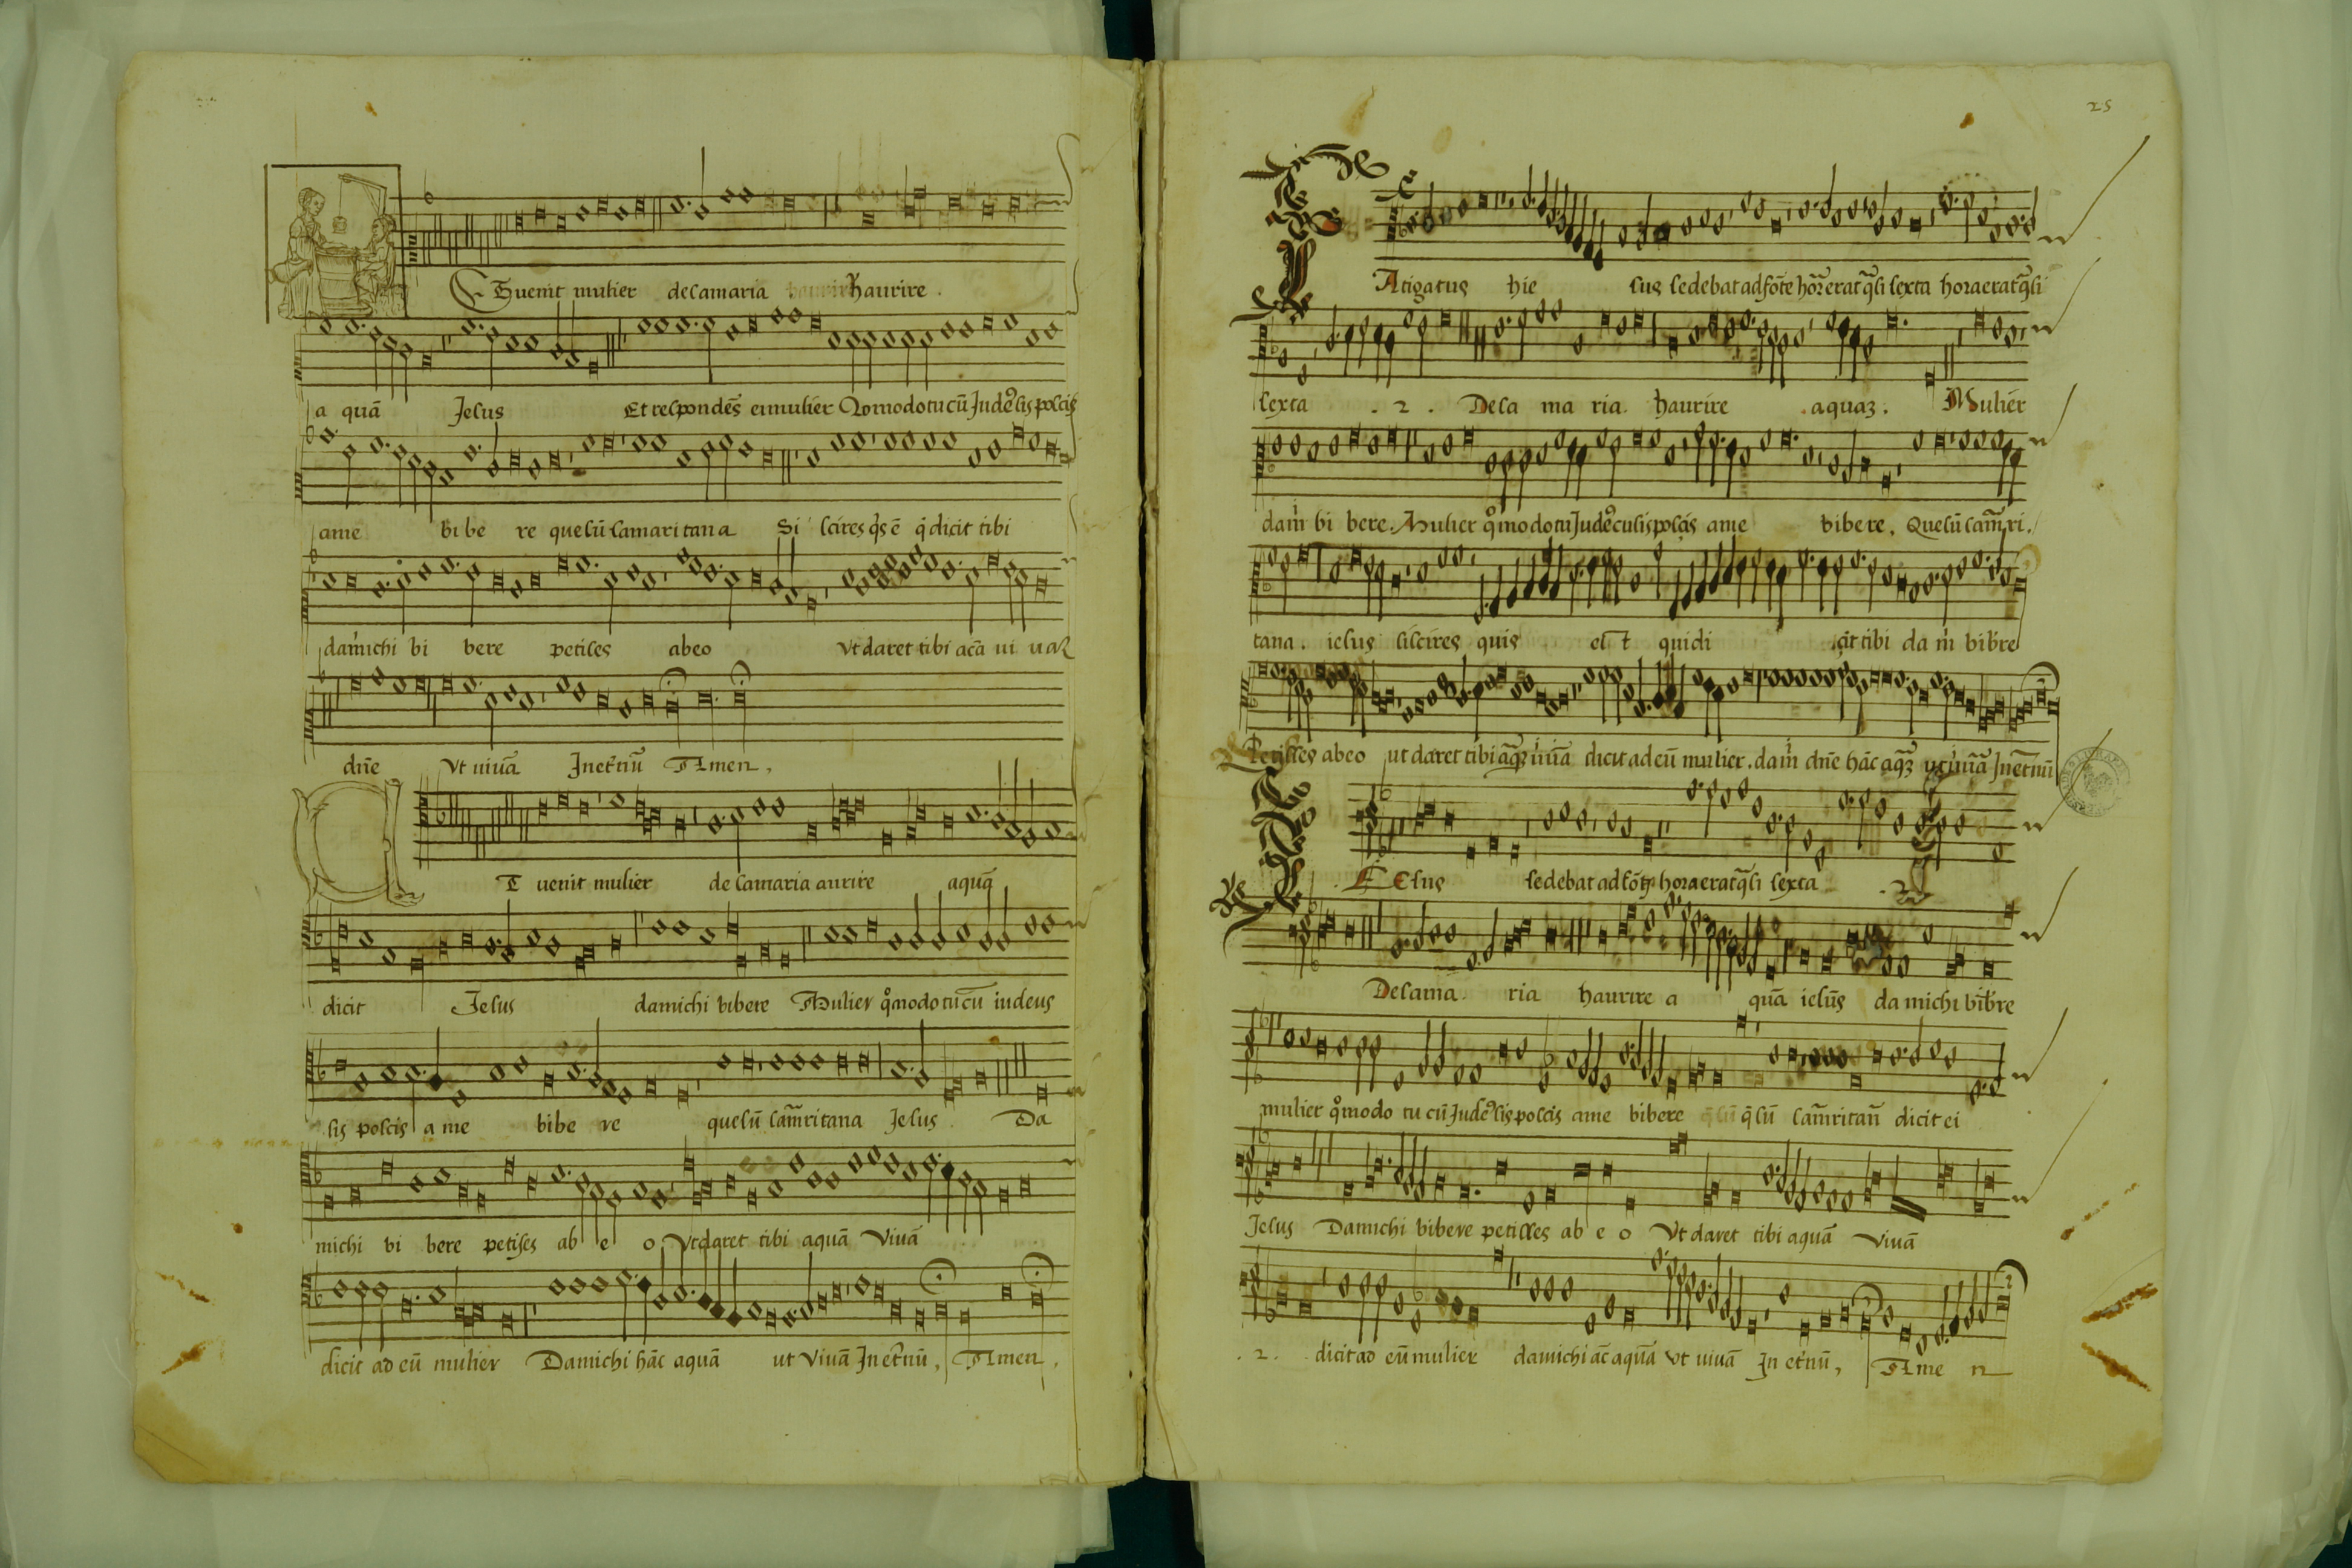 Et uenit mulier de samaria haurire.
a quā Jesus Et respondēs ei mulier Qomodo tu cū Jude9 sis poscis
a me bi be re que sū samaritana Si scires q̇s ē q̇ dicit tibi
da michi bi bere petises abeo Vt daret tibi acā ui uaꝛ
dn̄e Vt uiuā In et̄nū Amen,
ET uenit mulier de samaria aurire aquā
dicit Jesus da michi bibere Mulier qo̊modo tu cū iudeus
sis poscis a me bibe re que sū sam̄ritana Jesus. Da
michi bi bere petises ab e o Vt daret tibi aquā Viuā
dicit ad eū mulier Da michi hāc aquā ut Viuā In et̄nū, Amen.
25
FAtigatus hie sus sedebat ad fōte hōr̄ erat q̄si sexta hora erat q̄si
sexta .2. De sa ma ria haurire aquaʒ. Mulier
dam̄ bi bere. Mulier qo̊modo tu Jude9 cu sis poscis a me bibere. Que sū sam̄ri.
tana. iesus si scires quis est quidi cit tibi da m̄ bib̄re
Petisses abeo ut daret tibi uiuā dicit ad eū mulier. dam̄ dn̄e hāc In et̄nū
IEsus sedebat ad fōte hora erat q̄si sexta .2.
De sama ria haurire a quā iesūs da michi bib̄re
mulier qo̊modo tu cū Jude9 sis poscis a me bibere q̄ sū sam̄ritan̄ dicit ei
Jesus Da michi bibere petisses ab e o Vt daret tibi aquā Viuā
.2. dicit ad eū mulier da michi āc aquā Vt uiuā In et̄nū, Ame n